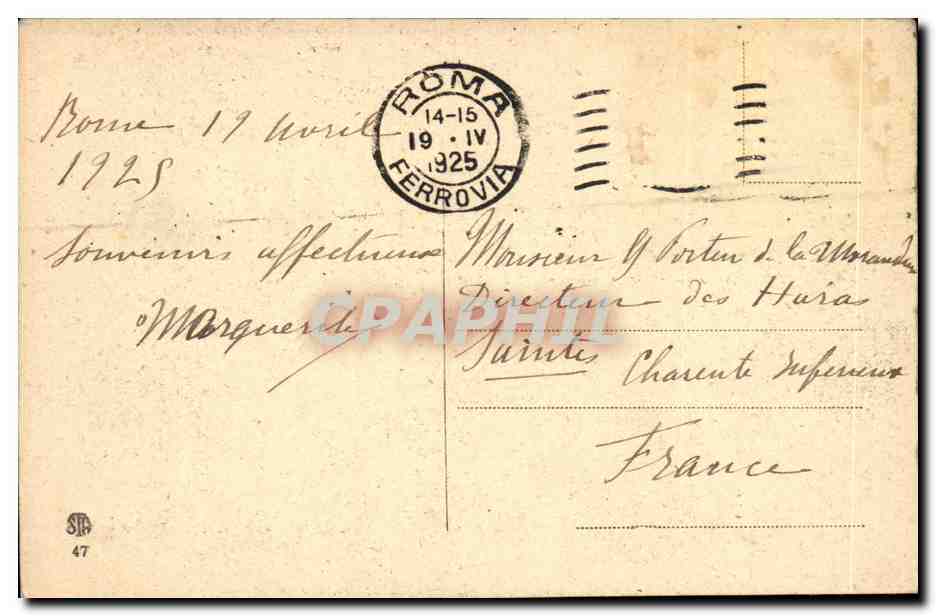 Rome 19 avril
1925
Souvenirs affectueux
Marguerite
ROMA
14-15
19 · IV
1925
FERROVIA
Monsieur G Porteu de la Morandière
Directeur des Haras
Saintes Charente Inférieure
France
CPAPHIL
STA
47